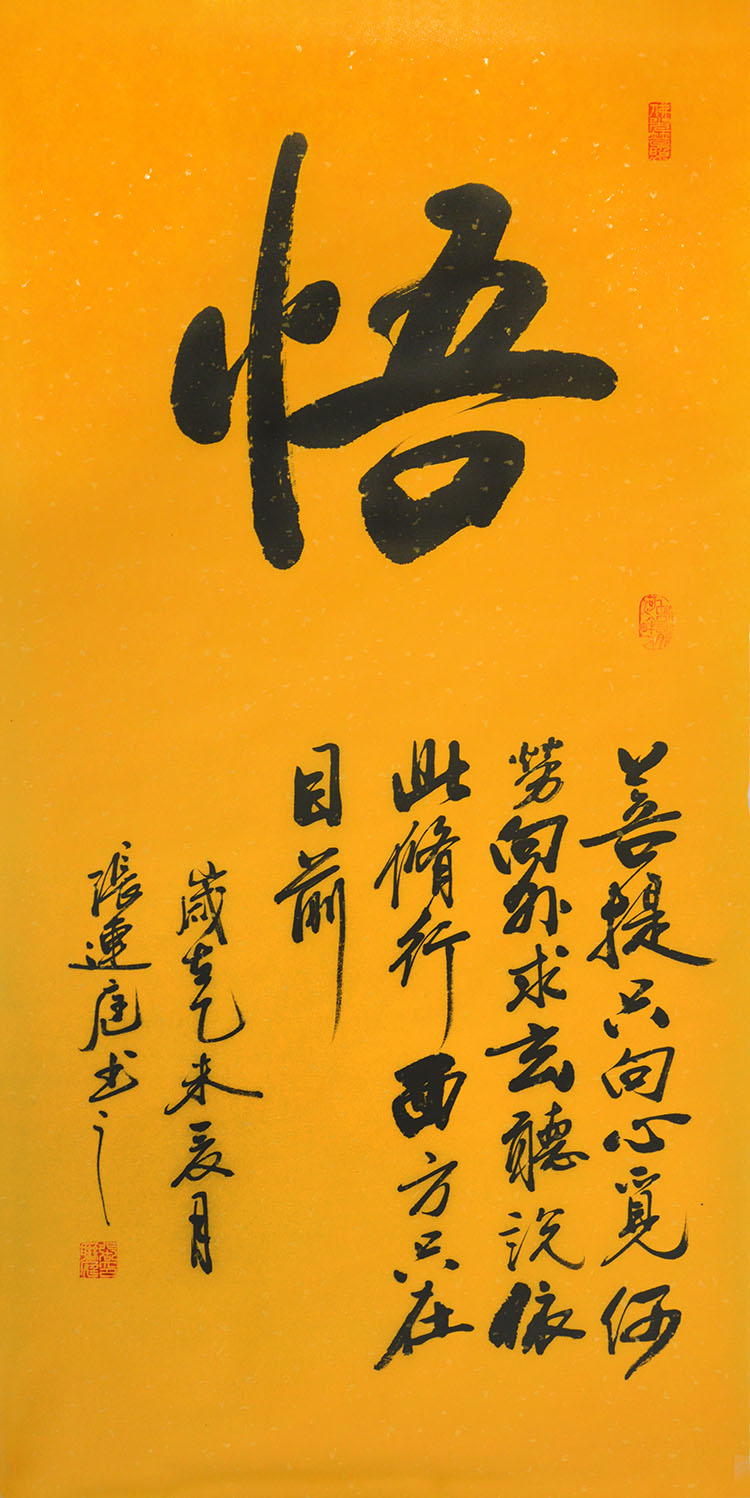 悟
菩提只向心覓何
勞向外求玄聽說依
此脩行西方只在
目前
歲在乙未夏月
張連庭书之